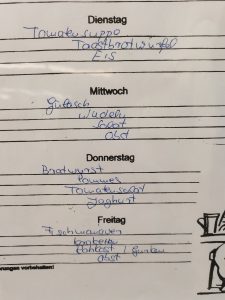 Dienstag
Tomatensuppe
Toastbrotwürfel
Eis
Mittwoch
Gulasch
Nudeln
Salat
Obst
Donnerstag
Bratwurst
Pommes
Tomatensalat
Joghurt
Freitag
Gurken
Obst
rungen vorbehalten!